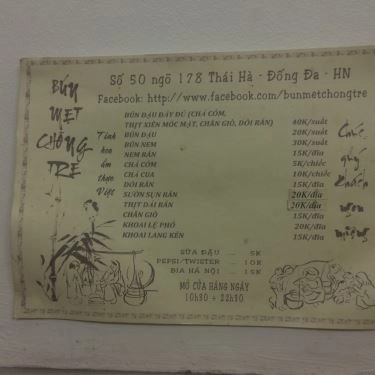 BÚN
MẸT
CHÕNG
TRE
Số 50 ngõ 178 Thái Hà - Đống Đa - HN
Facebook: http://www.facebook.com/bunmetchongtre
Tinh
hoa
ẩm
thực
Việt
BÚN ĐẬU ĐẦY ĐỦ (CHẢ CỐM,
THỊT XIÊN MÓC MẬT, CHÂN GIÒ, DỒI RÁN) 40K/suất
BÚN ĐẬU 20K/suất
BÚN NEM 30K/suất
NEM RÁN 15K/đĩa
CHẢ CỐM 5K/chiếc
CHẢ CUA 10K/chiếc
DỒI RÁN 15K/đĩa
SƯỜN SỤN RÁN 20K/đĩa
THỊT DẢI RÁN 20K/đĩa
CHÂN GIÒ 15K/đĩa
KHOAI LỆ PHỐ 20K/đĩa
KHOAI LANG KÉN 15K/đĩa
Chúc
quý
khách
ngon
miệng
SỮA ĐẬU - 5K
PEPSI/TWISTER - 10K
BIA HÀ NỘI - 15K
MỞ CỬA HÀNG NGÀY
10h30 + 22h30